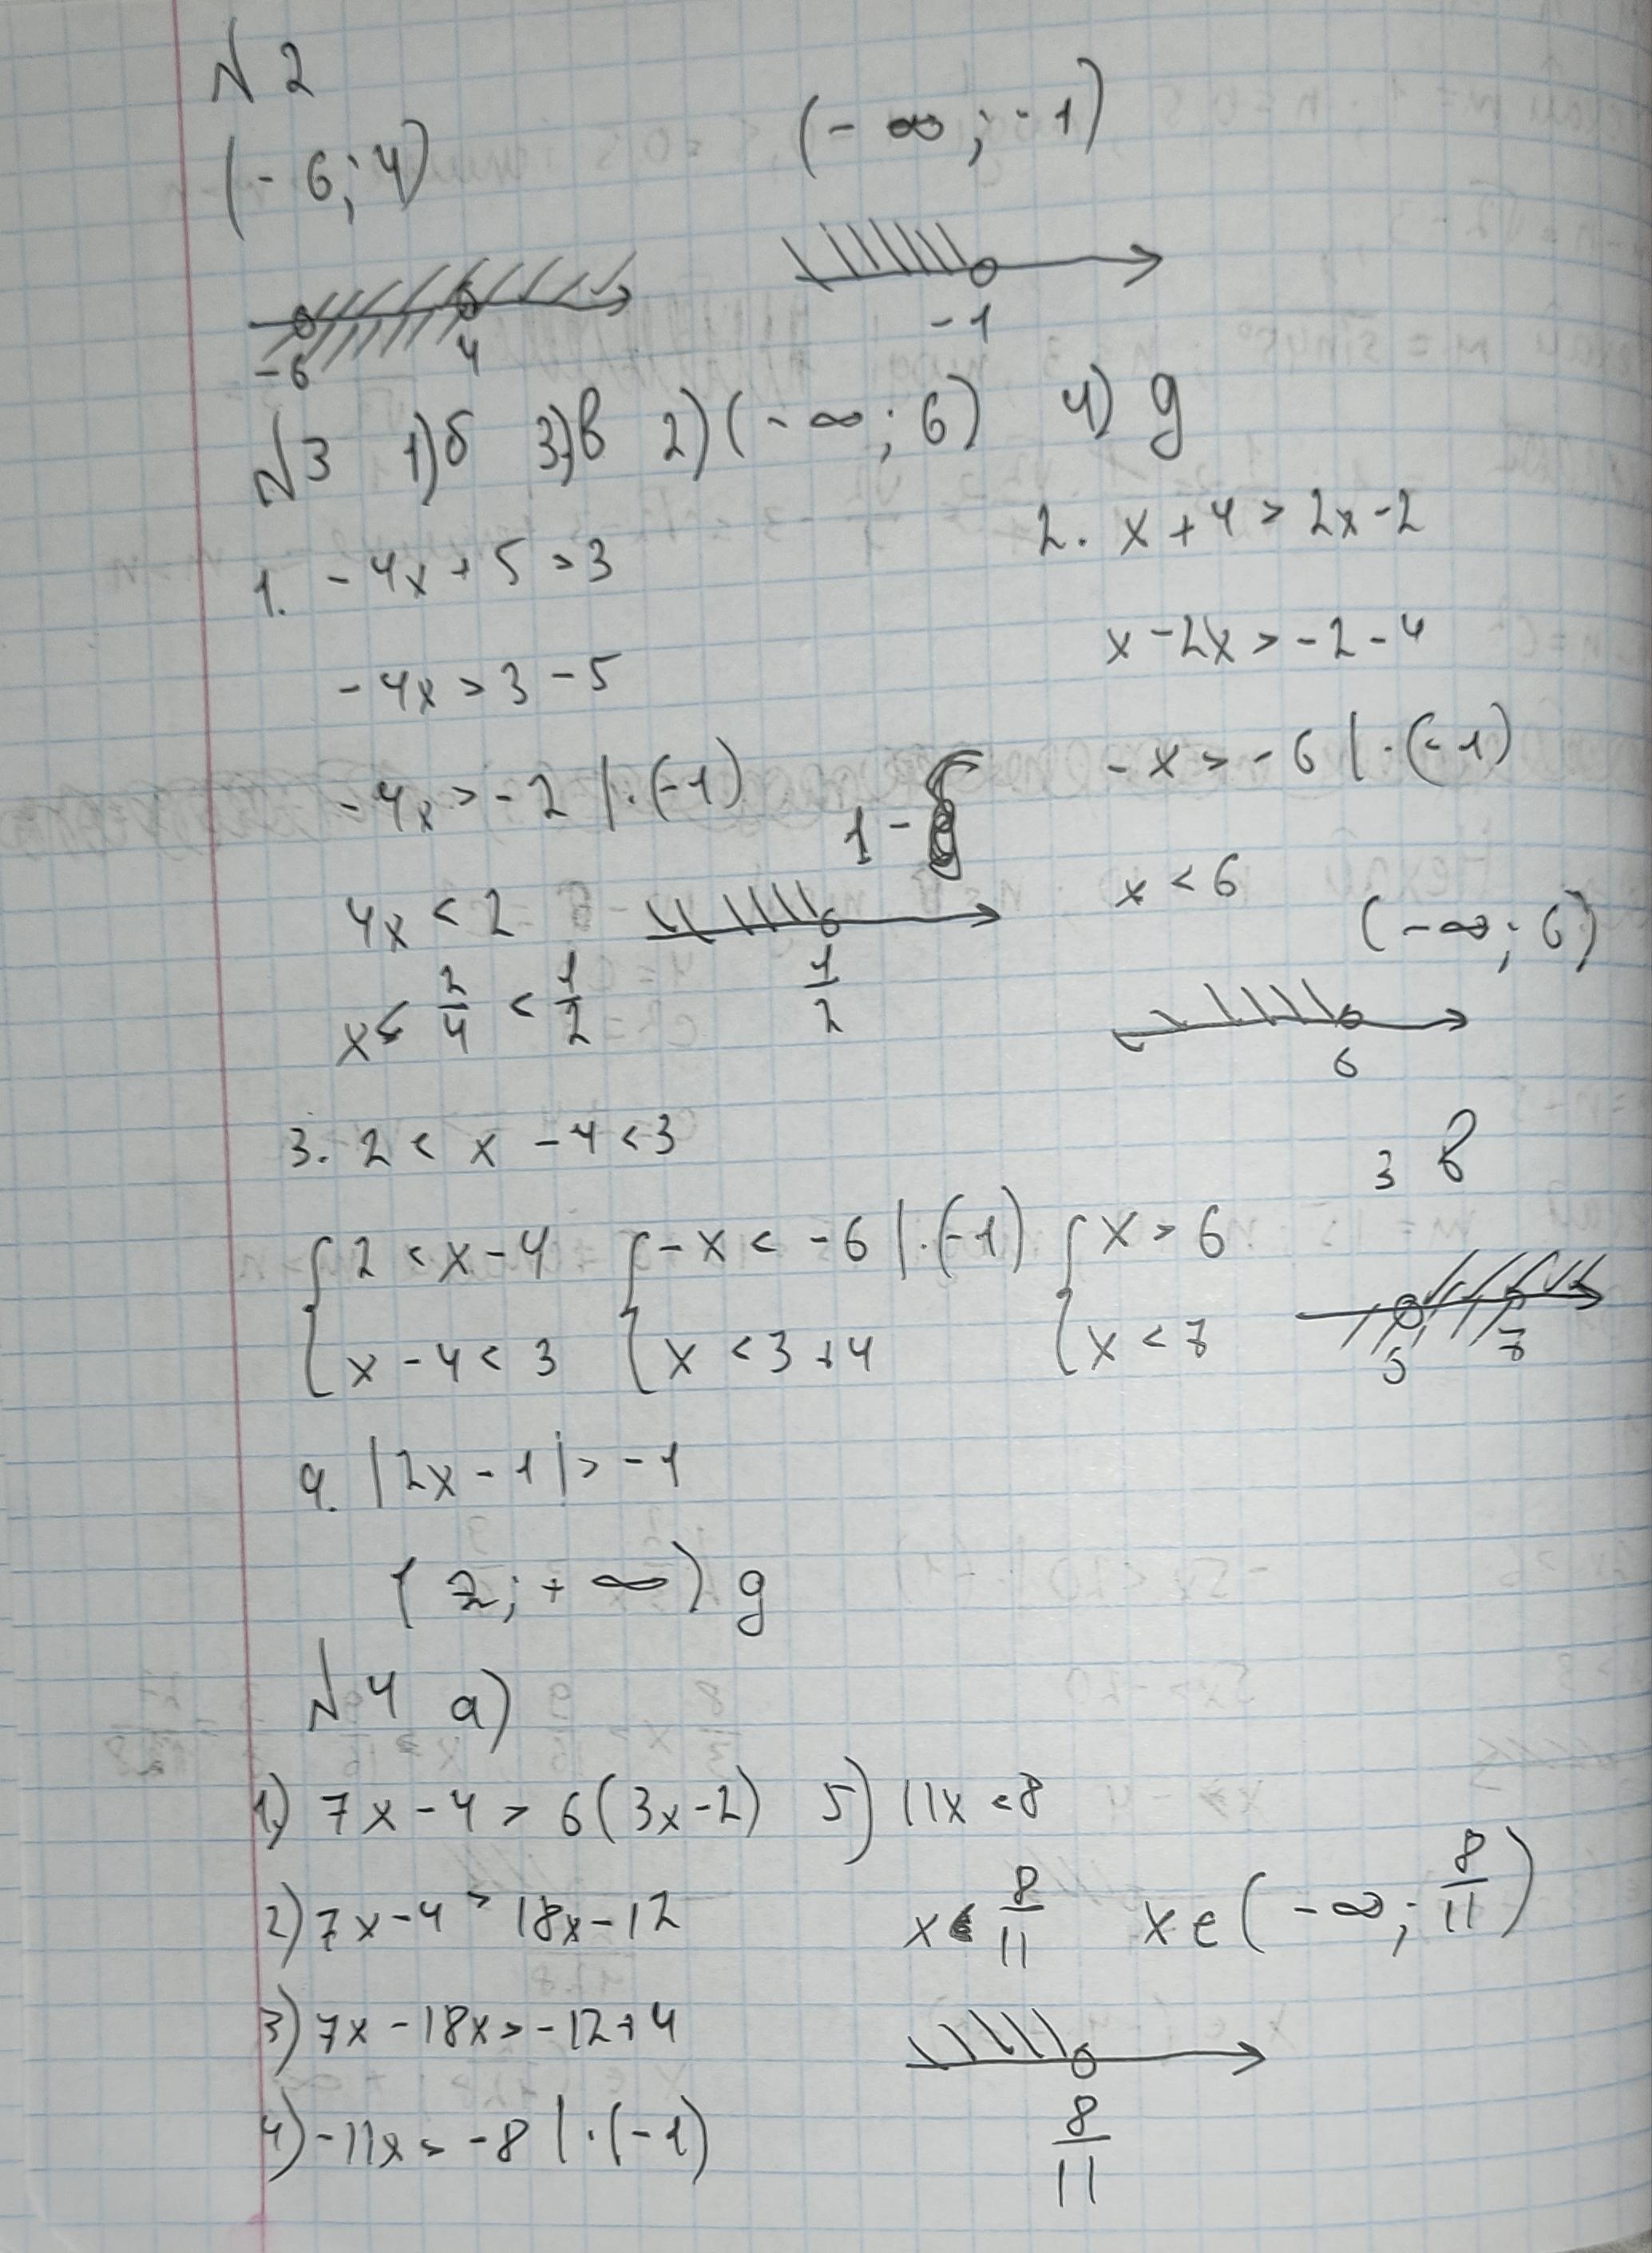 №2
(-6; 4)
(-∞; -1)
-6 4
-1
№3 1) б 3) в 2) (-∞; 6) 4) g
1. -4x + 5 > 3
-4x > 3 - 5
-4x > -2 | ·(-1)
1 -
4x < 2
x < 2/4 < 1/2
1/2
2. x + 4 > 2x - 2
x - 2x > -2 - 4
-x > -6 | ·(-1)
x < 6
(-∞; 6)
6
3. 2 < x - 4 < 3
3 в
{ 2 < x - 4 { -x < -6 | ·(-1) { x > 6
{ x - 4 < 3 { x < 3 + 4 { x < 7
5 7
4. |2x - 1| > -1
(2; +∞) g
№4 а)
1) 7x - 4 > 6(3x - 2)
2) 7x - 4 > 18x - 12
3) 7x - 18x > -12 + 4
4) -11x > -8 | ·(-1)
5) 11x < 8
x < 8/11 x ∈ (-∞; 8/11)
8/11